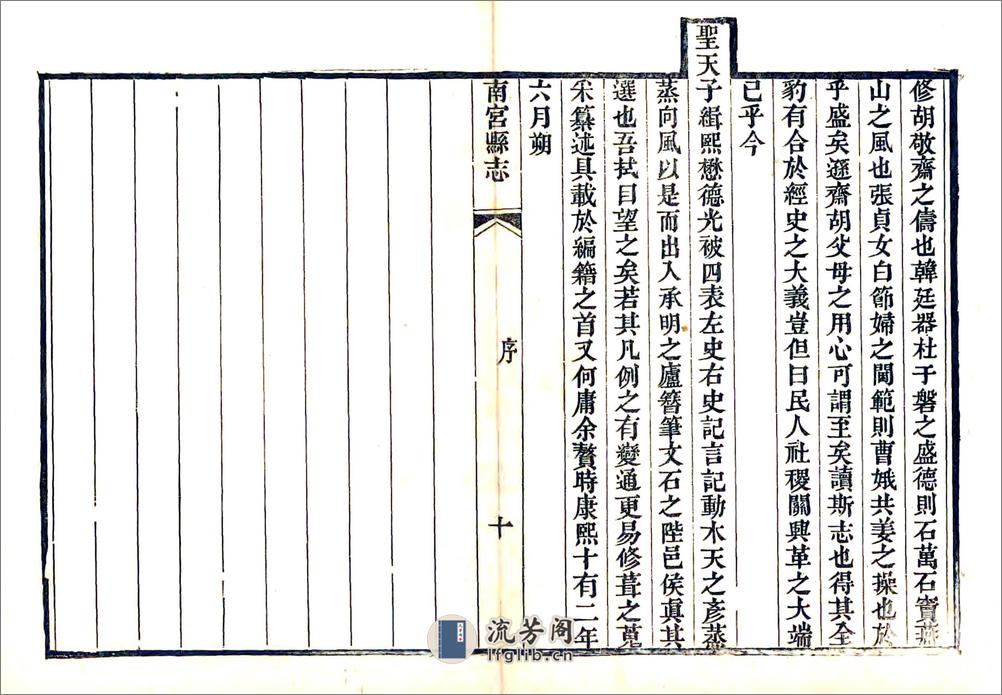 修胡敬齋之儔也韓廷器杜于磐之盛德則石萬石竇燕
山之風也張貞女白節婦之閫範則曹娥共姜之操也於
乎盛矣遜齋胡父母之用心可謂至矣讀斯志也得其全
豹有合於經史之大義豈但曰民人社稷關興革之大端
已乎今
聖天子緝熙懋德光被四表左史右史記言記動木天之彥蒸
蒸向風以是而出入承明之廬簪筆文石之陛邑侯眞其
選也吾拭目望之矣若其凡例之有變通更易修葺之蒐
采纂述具載於編籍之首又何庸余贅時康熙十有二年
六月朔
南宮縣志
序
十
流芳阁
lfglib.cn